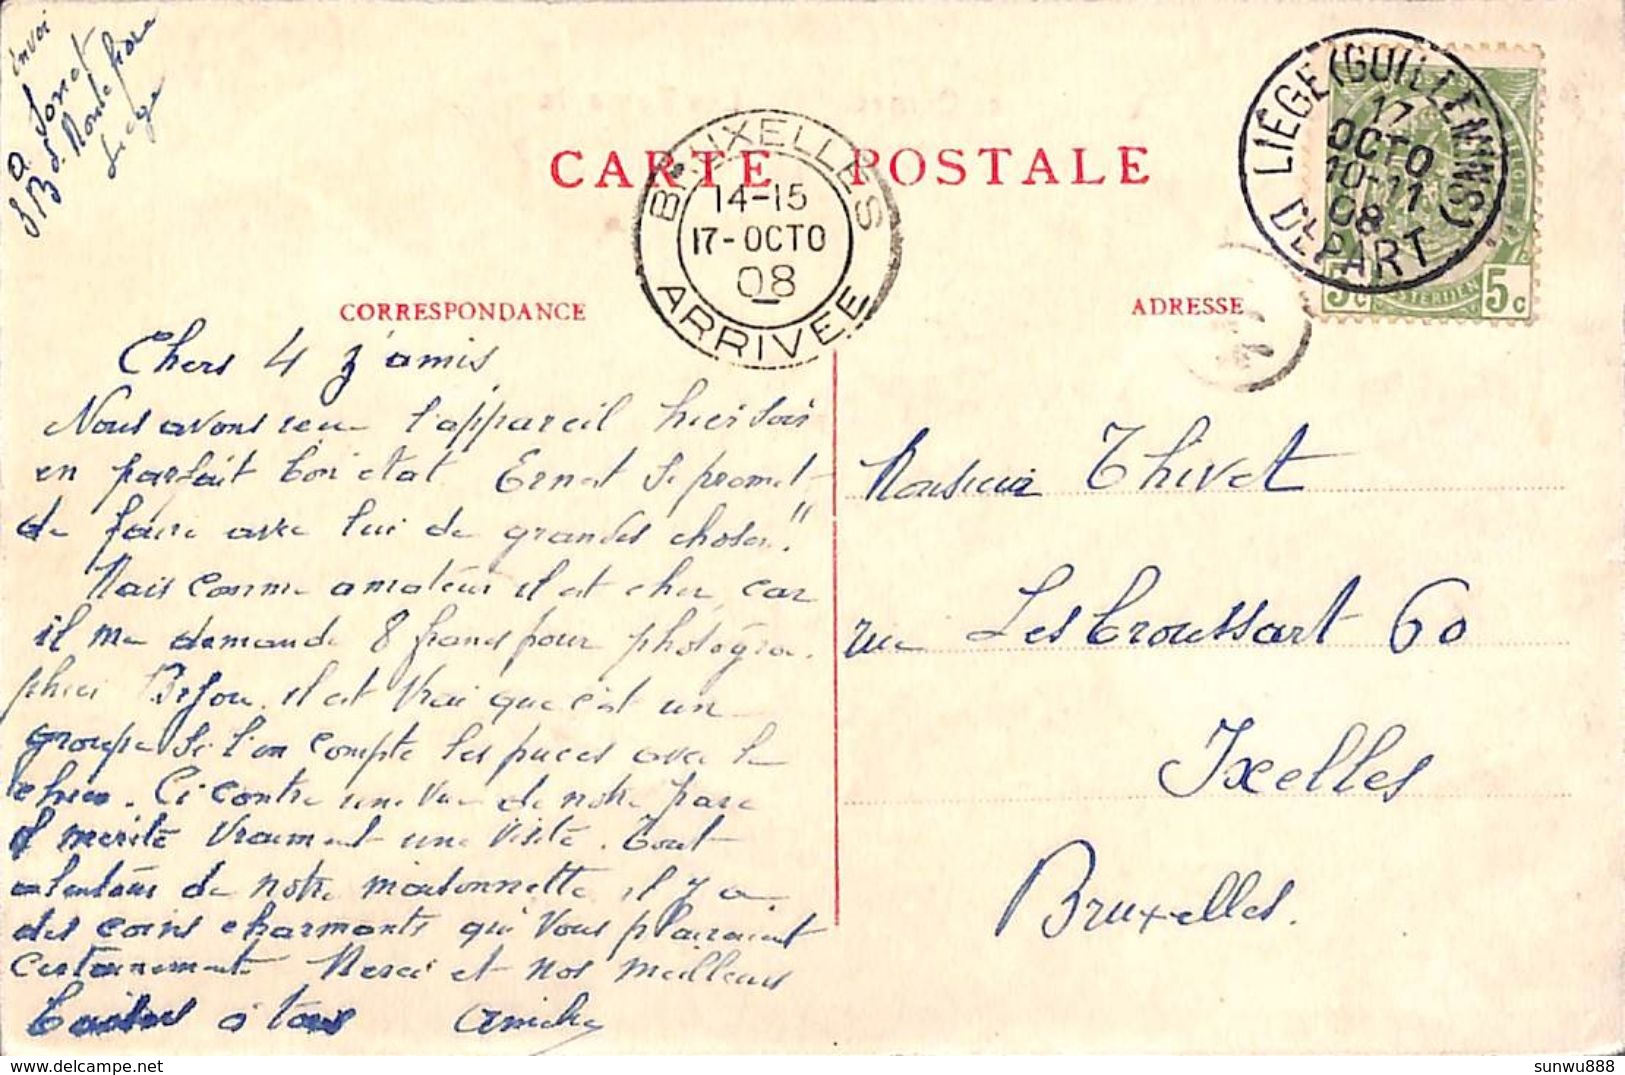 envoi
D. Sonet
3 B. d. Monte fiore
Liege
CARTE POSTALE
BRUXELLES
14-15
17-OCTO
08
ARRIVEE
LIEGE (GUILLEMINS)
17
OCTO
10-11
08
DEPART
5c 5c
CORRESPONDANCE
ADRESSE
Chers 4 z'amis
Nous avons recu l'appareil hier soir
en parfait bon etat Ernest se promet
de faire avec lui de grandes choses."
Mais comme amateur il est cher, car
il me demande 8 francs pour photogra-
phier Bijou. il est vrai que c'est un
groupe si l'on compte les puces avec le
chien. Ci contre une vue de notre parc
il merite vraiment une visite. Tout
alentour de notre maisonnette il y a
des coins charmants qui vous plairaient
certainement. Merci et nos meilleurs
à tous
Monsieur Thivet
rue Lesbroussart 60
Ixelles
Bruxelles.
Delcampe.net
sunwu888